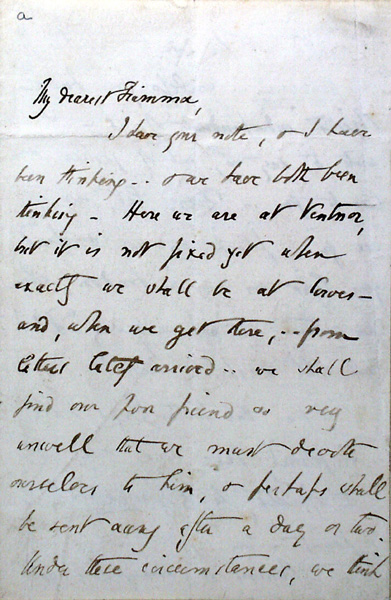 a
My dearest Fiamma,
I have your note, & I have
been thinking .. & we have both been
thinking - Here we are at Ventnor,
but it is not fixed yet when
exactly we shall be at Cowes -
and, when we get there, .. from
letters lately arrived .. we shall
find our poor friend so very
unwell that we must devote
ourselves to him, & perhaps shall
be sent away after a day or two.
Under these circumstances, we think